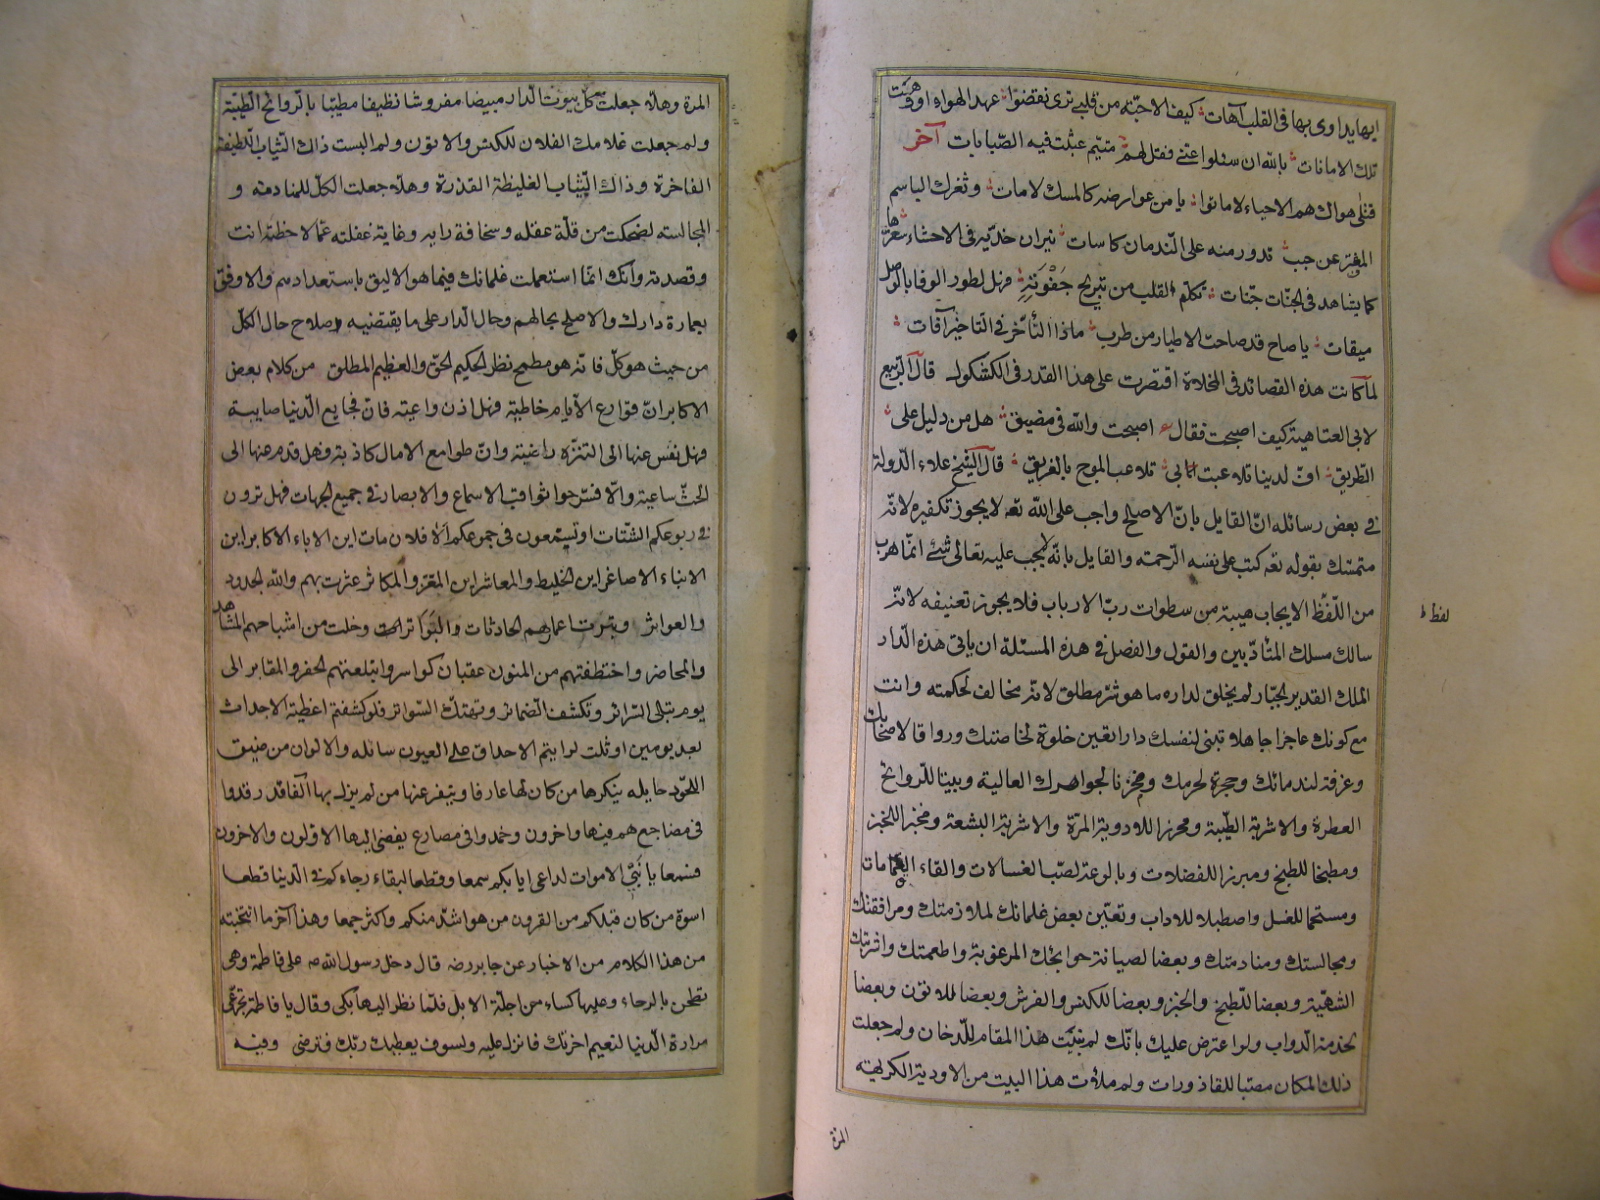 ايها يداوى بها فى القلب آهات كيف الاحبّه من قلبى ترى نقضوا عهد الهواه اوفهمت
تلك الامانات بالله ان سئلوا عنّى فقل لهم متيّم عبثت فيه الصّبابات آخر
قتلى هواك هم الاحباء لا ماتوا يا من عوارضه كالمسك لامات وثغرك الباسم
المفتر عن حبب قد ور منه على النّدمان كاسات نيران خدّيه فى الاحشاء
كما يشاهد فى الجنّات جنّات تكلّم القلب من تبريح جفوته فهل لطور الوفا بالوصل
ميقات يا صاح قد صاحت الاطيار من طرب ماذا التّأخّر فى التّاخير آفات
لما كانت هذه القصائد فى المخلاة اقتصرت على هذا القدر فى الكشكول قال الرّبيع
لابى العتاهية كيف اصبحت فقال اصبحت والله فى مضيق هل من دليل على
الطّريق افّ لدينا تلاعبت بى تلاعب الموج بالغريق قال الشّيخ علاء الدّولة
فى بعض رسائله انّ القايل بانّ الاصلح واجب على الله تعه لا يجوز تكفيره لانّه
متمسّك بقوله تعه كتب على نفسه الرّحمة والقايل بانّه لا يجب عليه تعالى شئ انّما هرب
من اللّفظ الايجاب هيبة من سطوات ربّ الارباب فلا يجوز تعنيفه لانّه
لفظ
سالك مسلك المتأدّبين والقول والفصل فى هذه المسئلة ان بانى هذه الدّار
الملك القدير الجبّار لم يخلق لداره ما هو شرّ مطلق لانّه مخالف لحكمته وانت
مع كونك عاجزا جاهلا تبنى لنفسك دارا تعين خلوة لخاصتك ورواقا لاصحابك
وغرفة لندمائك وحجرة لحرمك ومخزنا لجواهرك العالية وبيتا للرّوايح
العطرة والاشربة الطّيّبة ومحرزا للادوية المرّة والاشربة البشعة ومخبزا للخبز
ومطبخا للطبخ ومبرزا للفضلات وبالوعة لصبّ الغسالات والقاء القمامات
ومستحما للغسل واصطبلا للدواب وتعيّن بعض غلمانك لملازمتك ومرافقتك
ومجالستك ومنادمتك وبعضا لصيانة حوايجك المرغوبة واطعمتك واشربتك
الشهّية وبعضا للطبخ والخبز وبعضا للكنس والفرش وبعضا للاتون وبعضا
لخدمة الدّواب ولو اعترض عليك بانّك لم بنيت هذا المقام للدّخان ولم جعلت
ذلك المكان مصبّا للقاذورات ولم ملأت هذا البيت من الاودية الكريهة
المرّة
المرة وهلاّ جعلت كلّ بيوت الدّار مبيضا مفروشا نظيفا مطيّبا بالرّوائح الطّيّبة
ولم جعلت غلامك الفلان للكنس والاتون ولم البست ذاك الثّياب اللّطيفة
الفاخرة وذاك الثّياب الغليظة القذرة وهلاّ جعلت الكلّ للمنادمة و
المجالسة لضحكت من قلّة عقله وسخافة رايه وغاية غفلته عمّا لاحظته انت
وقصدته وانّك انّما استعملت غلمانك فيما هو الاليق باستعدادهم والاوفق
بعمارة دارك والاصلح بحالهم وحال الدّار على ما يقتضيه صلاح حال الكلّ
من حيث هو كلّ فانّه هو مطمح نظر الحكيم الحقّ والعظيم المطلق من كلام بعض
الاكابر انّ قوارع الأيّام خاطبة فهل اذن واعية فانّ فجايع الدّنيا صايبة
فهل نفس عنها الى التنزّه راغبة وانّ طوامع الامال كاذبة فهل قدم عنها الى
الحثّ ساعية والاّ فسرّحوا ثواقب الاسماع والابصار فى جميع الجهات فهل ترون
فى ربوعكم الشّتات او تسمعون فى جموعكم الاّ فلان مات اين الاباء الاكابر اين
الابناء الاصاغر اين الخليط والمعاشر اين المعتز والمكاثر عثرت بهم والله الجدود
والعواثر وبترت اعمارهم الحادثات والبواتر وخلت من اشباحهم المشاهد
والمحاضر واختطفتهم من المنون عقبان كواسر وابتلعتهم الحفر والمقابر الى
يوم تبلى السّرائر وتكشف الضّمائر وتهتك السّواتر فلو كشفتم اغطية الاجداث
بعد يومين او ثلث لرايتم الاحداق على العيون سائله والالوان من ضيق
اللّحود حايله ينكرها من كان لها عارفا وينفر عنها من لم يزل بها آلفا قد رقدوا
فى مضاجع هم فيها واخرون وخمدوا فى مصارع يفضى اليها الاوّلون والاخرون
فسمعا يا بنى الاموات لداعى ابائكم سمعا وقطعا لبقاء رجاءكم فى الدّنيا قطعا
اسوة من كان قبلكم من القرون من هو اشدّ منكم واكثر جمعا وهذا آخر ما انتخبته
من هذا الكلام من الاخبار عن جابر رضه قال دخل رسول الله صه على فاطمة وهى
تطحن بالرحاء وعليها كساء من اجلّة الابل فلمّا نظر اليها بكى وقال يا فاطمة تجرّعى
مرارة الدّنيا لنعيم اخرتك فانزل عليه ولسوف يعطيك ربّك فترضى وفيه